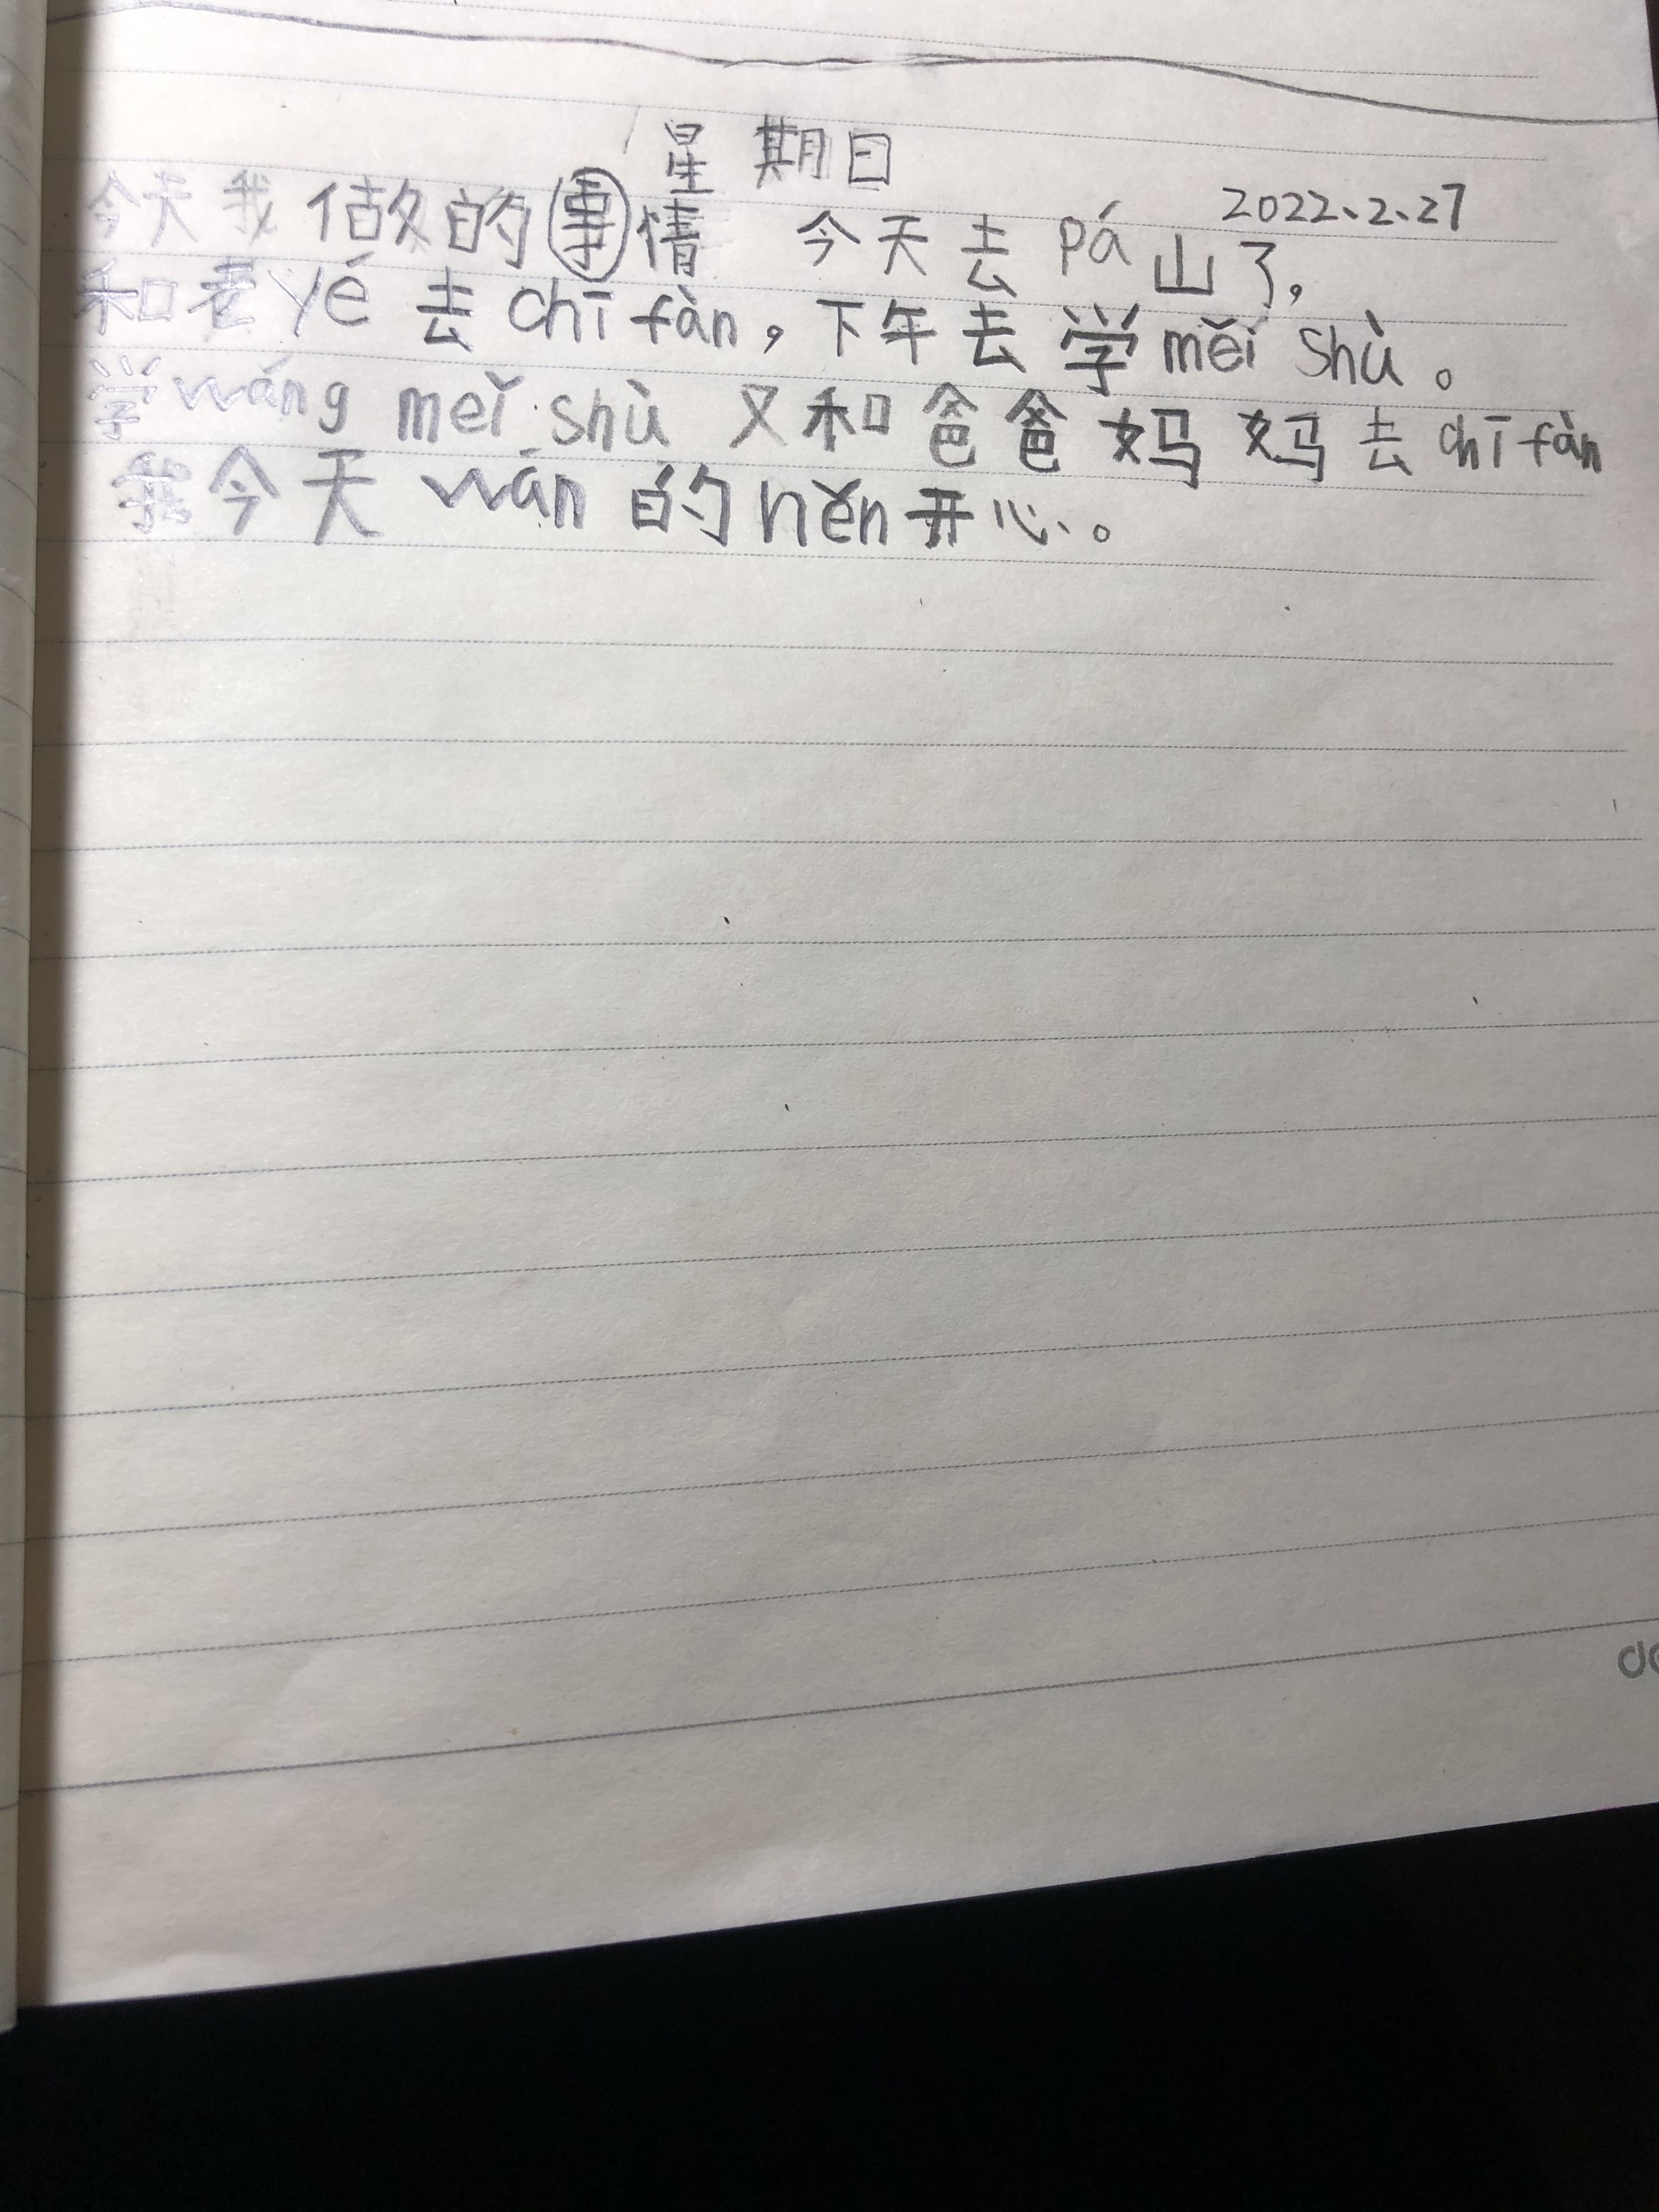 星期日
2022、2、27
今天我做的事情 今天去pá山了,
和老yé去chī fàn,下午去学měi shù。
学wáng meǐ shù又和爸爸妈妈去chī fàn
我今天wán的hěn开心。